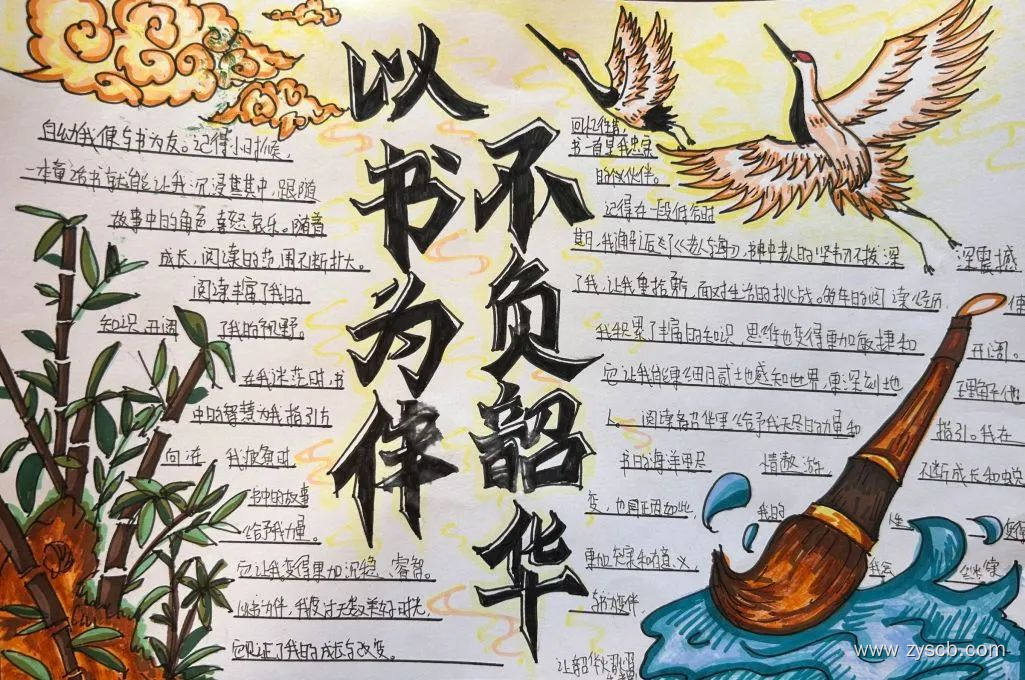 以书为伴
不负韶华
自幼我便与书为友。记得小时候，
一本童话书就能让我沉浸其中，跟随
故事中的角色喜怒哀乐。随着
成长，阅读的范围不断扩大。
阅读丰富了我的
知识开阔了我的视野。
在我迷茫时，书
中的智慧为我指引方
向
书中的故事
给予我力量。
它让我变得更加沉稳、睿智。
以书为伴，我度过无数美好时光，
它见证了我的成长与改变。
回忆往昔，
书一直是我忠实
的伙伴。
记得在一段低谷时
期，我读了《老人与海》，书中老人的坚韧不拔深深震撼
了我，让我重拾，面对生活的挑战。多年的阅读经历，使
我积累了丰富的知识思维也变得更加敏捷和开阔。
它让我能细腻地感知世界，更深刻地理解他
人。阅读给予我无尽的力量和指引。我在
书的海洋里尽情遨游，不断成长和蜕
变，也正因如此，我的人生
更加充实和有意义。我会继续
与书为伴，
让韶华
www.zyscb.com